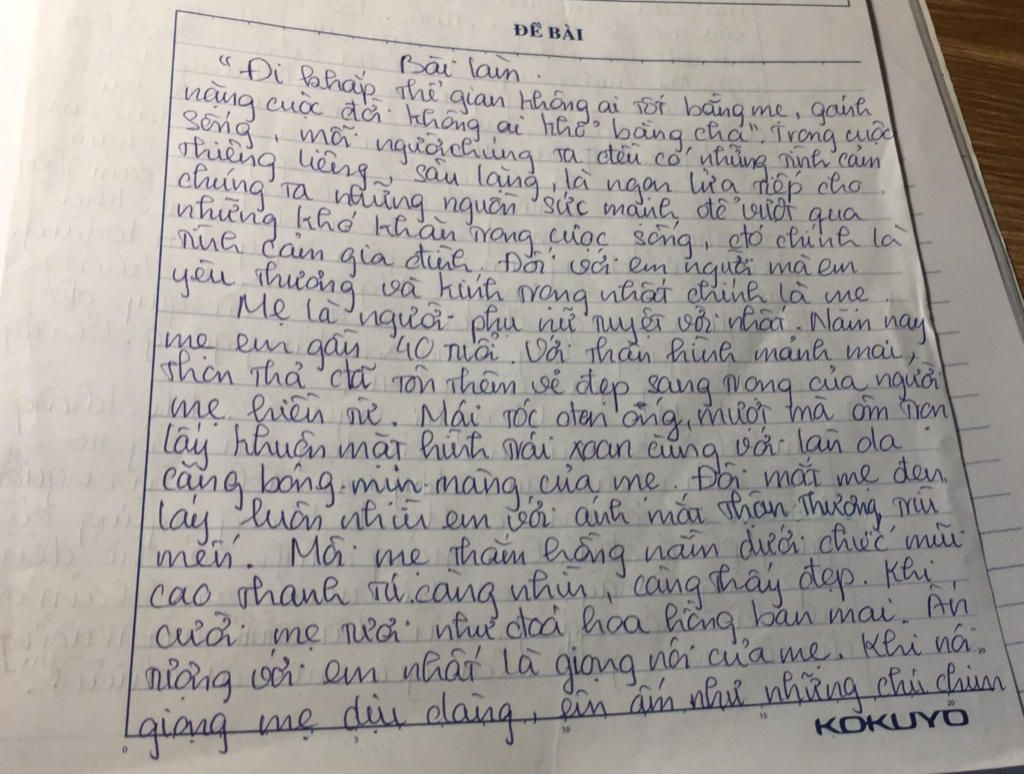 ĐỀ BÀI
Bài làm.
"Đi khắp thế gian không ai tốt bằng mẹ, gánh
nặng cuộc đời không ai khổ bằng cha". Trong cuộc
sống, mỗi người chúng ta đều có những tình cảm
thiêng liêng, sâu lặng, là ngọn lửa tiếp cho
chúng ta những nguồn sức mạnh để vượt qua
những khó khăn trong cuộc sống, đó chính là
tình cảm gia đình. Đối với em người mà em
yêu thương và kính trọng nhất chính là mẹ.
Mẹ là người phụ nữ tuyệt vời nhất. Năm nay
mẹ em gần 40 tuổi. Với thân hình mảnh mai,
thon thả đã tôn thêm vẻ đẹp sang trọng của người
mẹ hiền từ. Mái tóc đen óng, mượt mà ôm trọn
lấy khuôn mặt hình trái xoan cùng với làn da
căng bóng mịn màng của mẹ. Đôi mắt mẹ đen
láy luôn nhìn em với ánh mắt thân thương, trìu
mến. Môi mẹ thắm hồng nằm dưới chiếc mũi
cao thanh tú càng nhìn, càng thấy đẹp. Khi
cười mẹ tươi như đoá hoa hồng ban mai. Ấn
tượng với em nhất là giọng nói của mẹ. Khi nói
giọng mẹ dịu dàng, ấm như những chú chim
KOKUYO
0 5 10 15 20